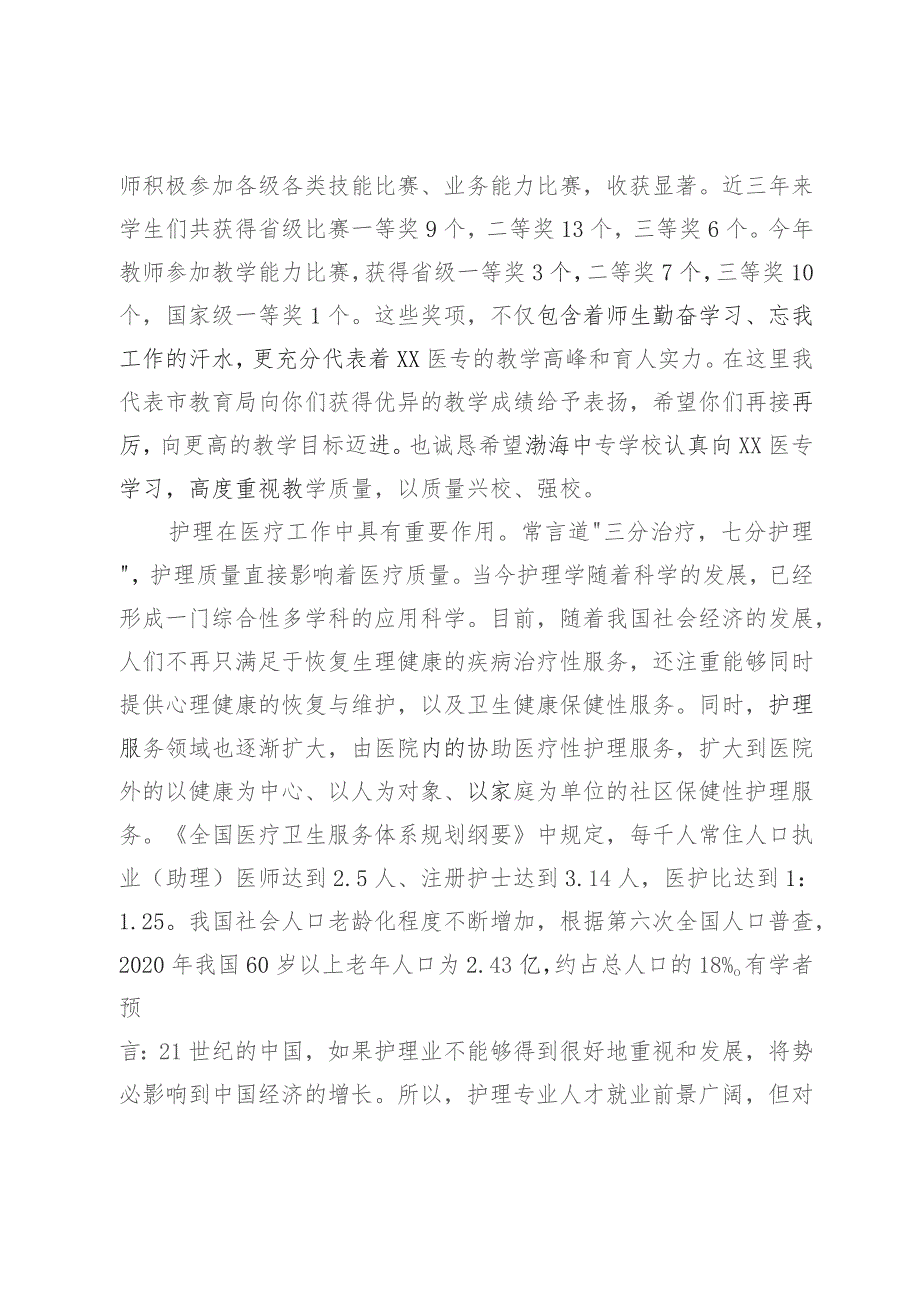 师积极参加各级各类技能比赛、业务能力比赛，收获显著。近三年来
学生们共获得省级比赛一等奖 9 个，二等奖 13 个，三等奖 6 个。今年
教师参加教学能力比赛,获得省级一等奖 3 个,二等奖 7 个,三等奖 10
个，国家级一等奖 1 个。这些奖项，不仅包含着师生勤奋学习、忘我
工作的汗水，更充分代表着 XX 医专的教学高峰和育人实力。在这里我
代表市教育局向你们获得优异的教学成绩给予表扬，希望你们再接再
厉，向更高的教学目标迈进。也诚恳希望渤海中专学校认真向 XX 医专
学习，高度重视教学质量，以质量兴校、强校。
护理在医疗工作中具有重要作用。常言道"三分治疗，七分护理
"，护理质量直接影响着医疗质量。当今护理学随着科学的发展，已经
形成一门综合性多学科的应用科学。目前，随着我国社会经济的发展，
人们不再只满足于恢复生理健康的疾病治疗性服务，还注重能够同时
提供心理健康的恢复与维护，以及卫生健康保健性服务。同时，护理
服务领域也逐渐扩大，由医院内的协助医疗性护理服务，扩大到医院
外的以健康为中心、以人为对象、以家庭为单位的社区保健性护理服
务。《全国医疗卫生服务体系规划纲要》中规定，每千人常住人口执
业（助理）医师达到 2.5 人、注册护士达到 3.14 人，医护比达到 1：
1.25。我国社会人口老龄化程度不断增加，根据第六次全国人口普查，
2020 年我国 60 岁以上老年人口为 2.43 亿,约占总人口的 18%。有学者
预
言：21 世纪的中国，如果护理业不能够得到很好地重视和发展，将势
必影响到中国经济的增长。所以，护理专业人才就业前景广阔，但对